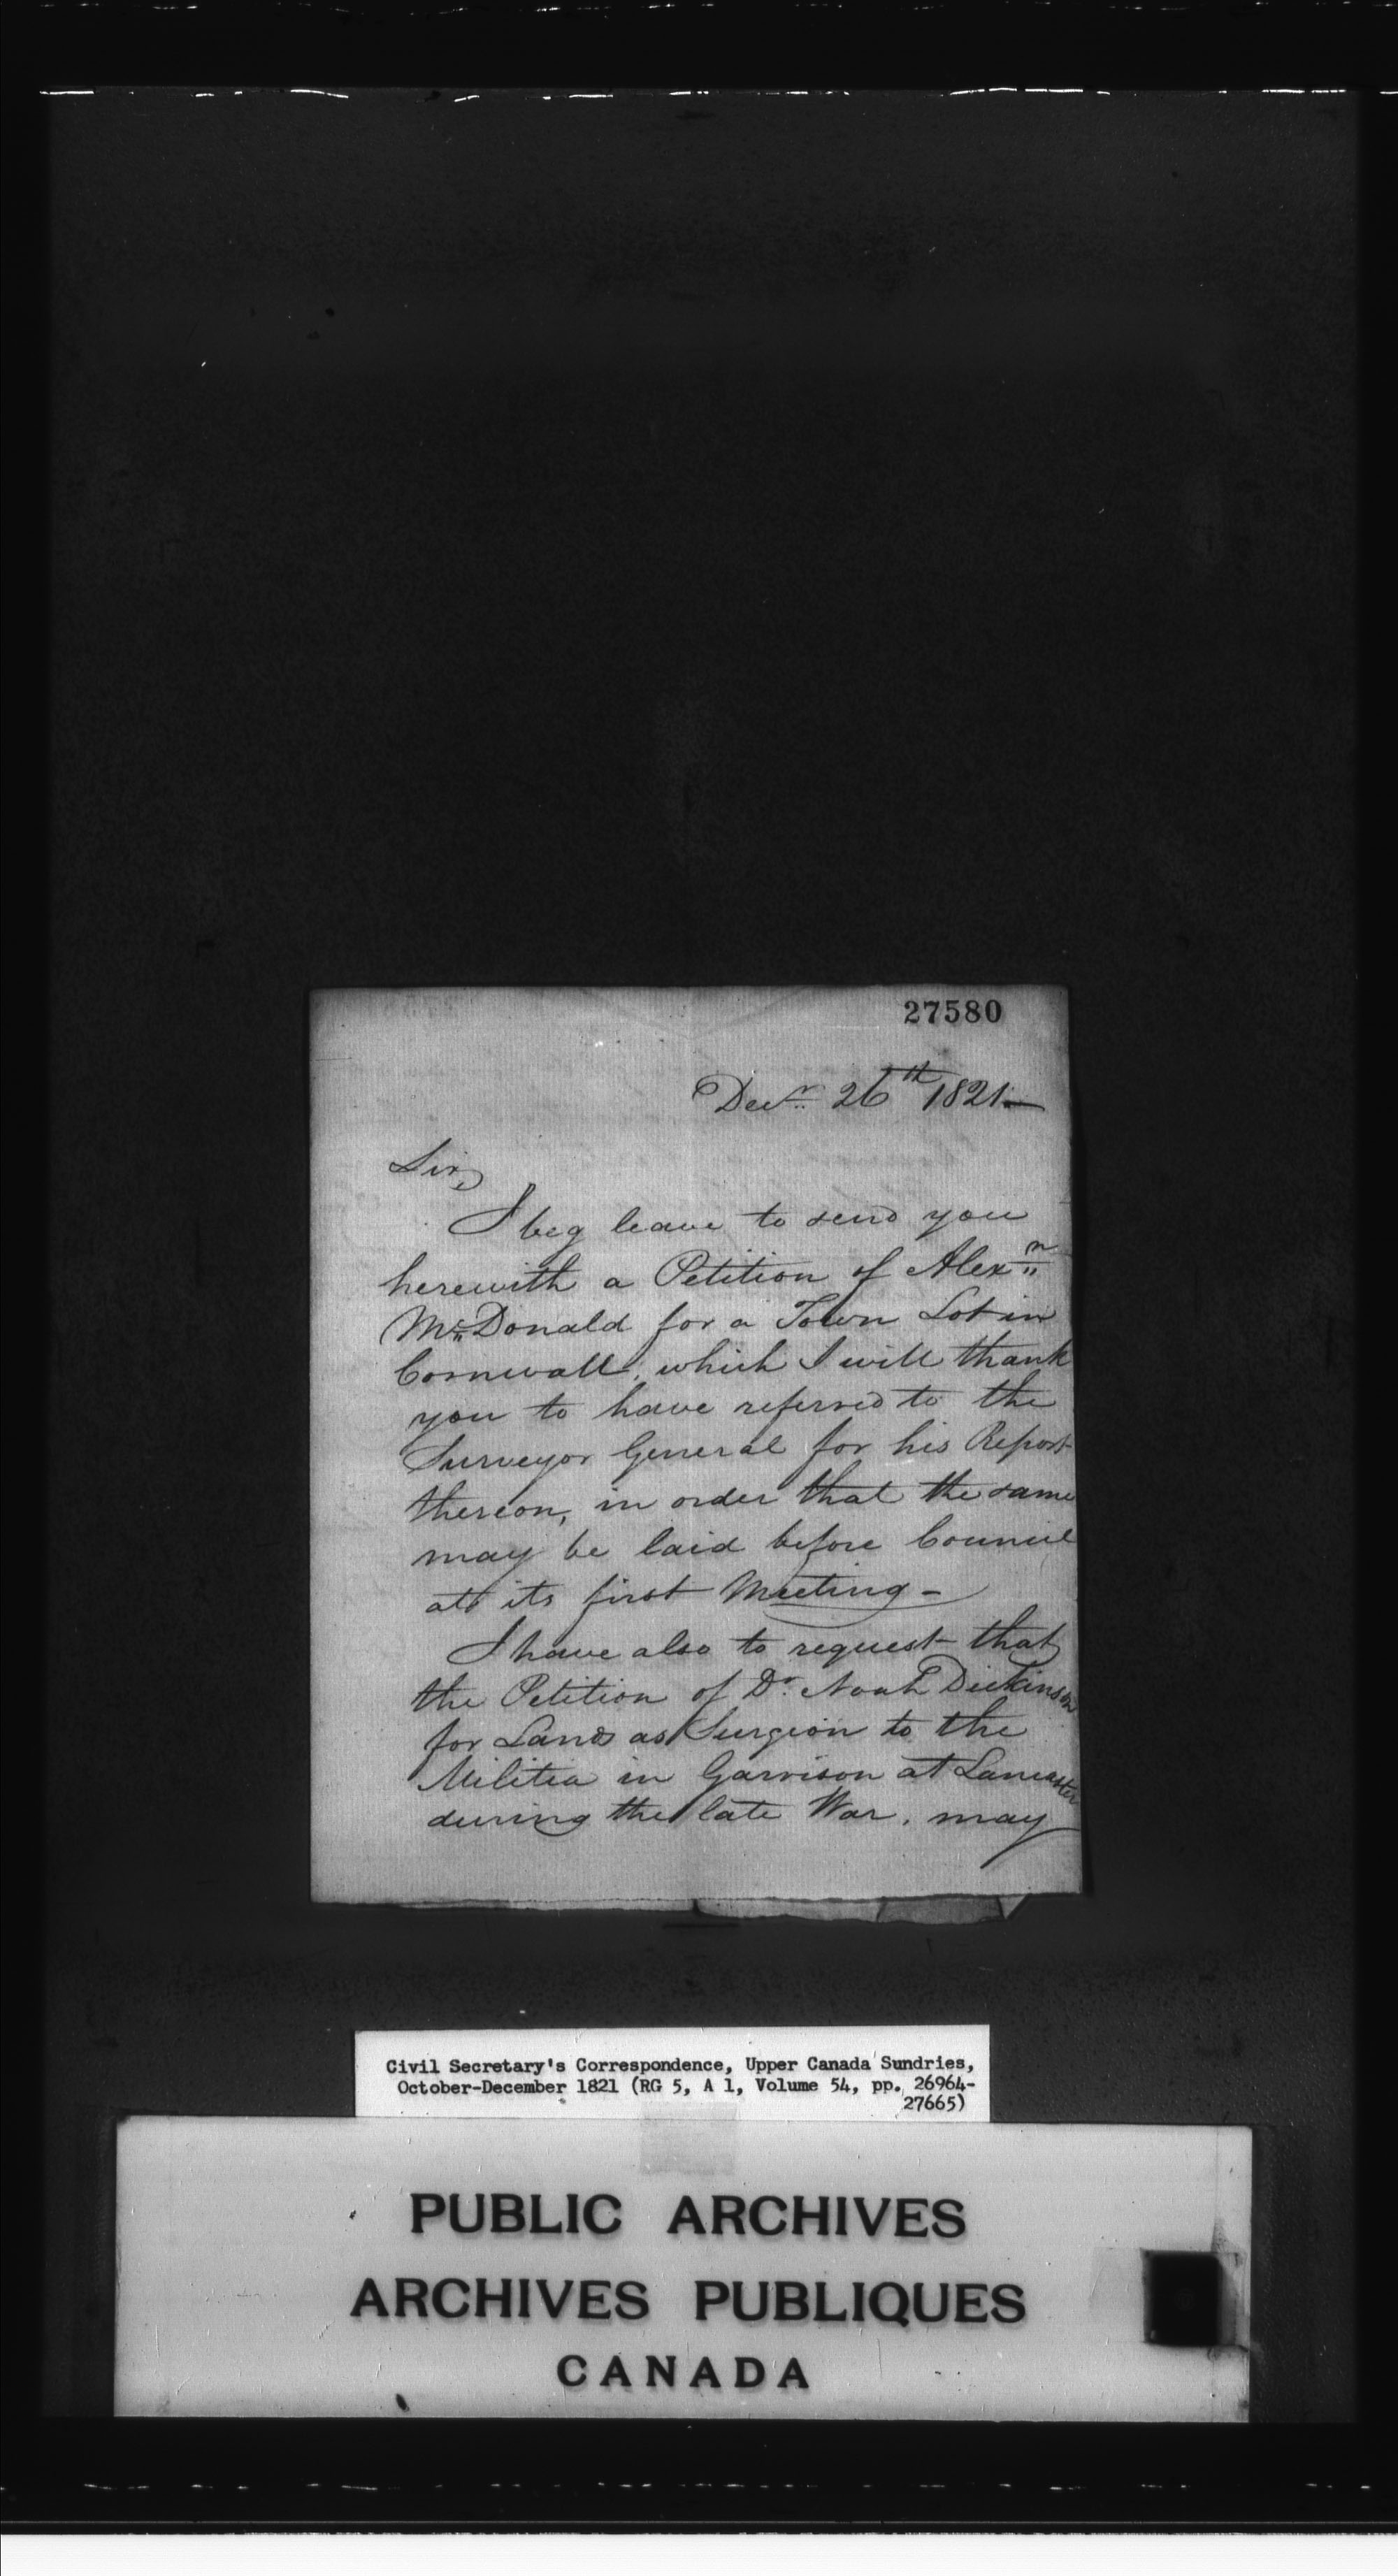 27580
Decr. 26th 1821—
Sir,
I beg leave to send you
herewith a Petition of Alexr
McDonald for a Town Lot in
Cornwall, which I will thank
you to have referred to the
Surveyor General for his Report
thereon, in order that the same
may be laid before Council
at its first Meeting -
I have also to request that
the Petition of Dr. Noah Dickinson
for Lands as Surgeon to the
Militia in Garrison at Lancaster
during the late War, may
Civil Secretary's Correspondence, Upper Canada Sundries,
October-December 1821 (RG 5, A 1, Volume 54, pp. 26964-
27665)
PUBLIC ARCHIVES
ARCHIVES PUBLIQUES
CANADA